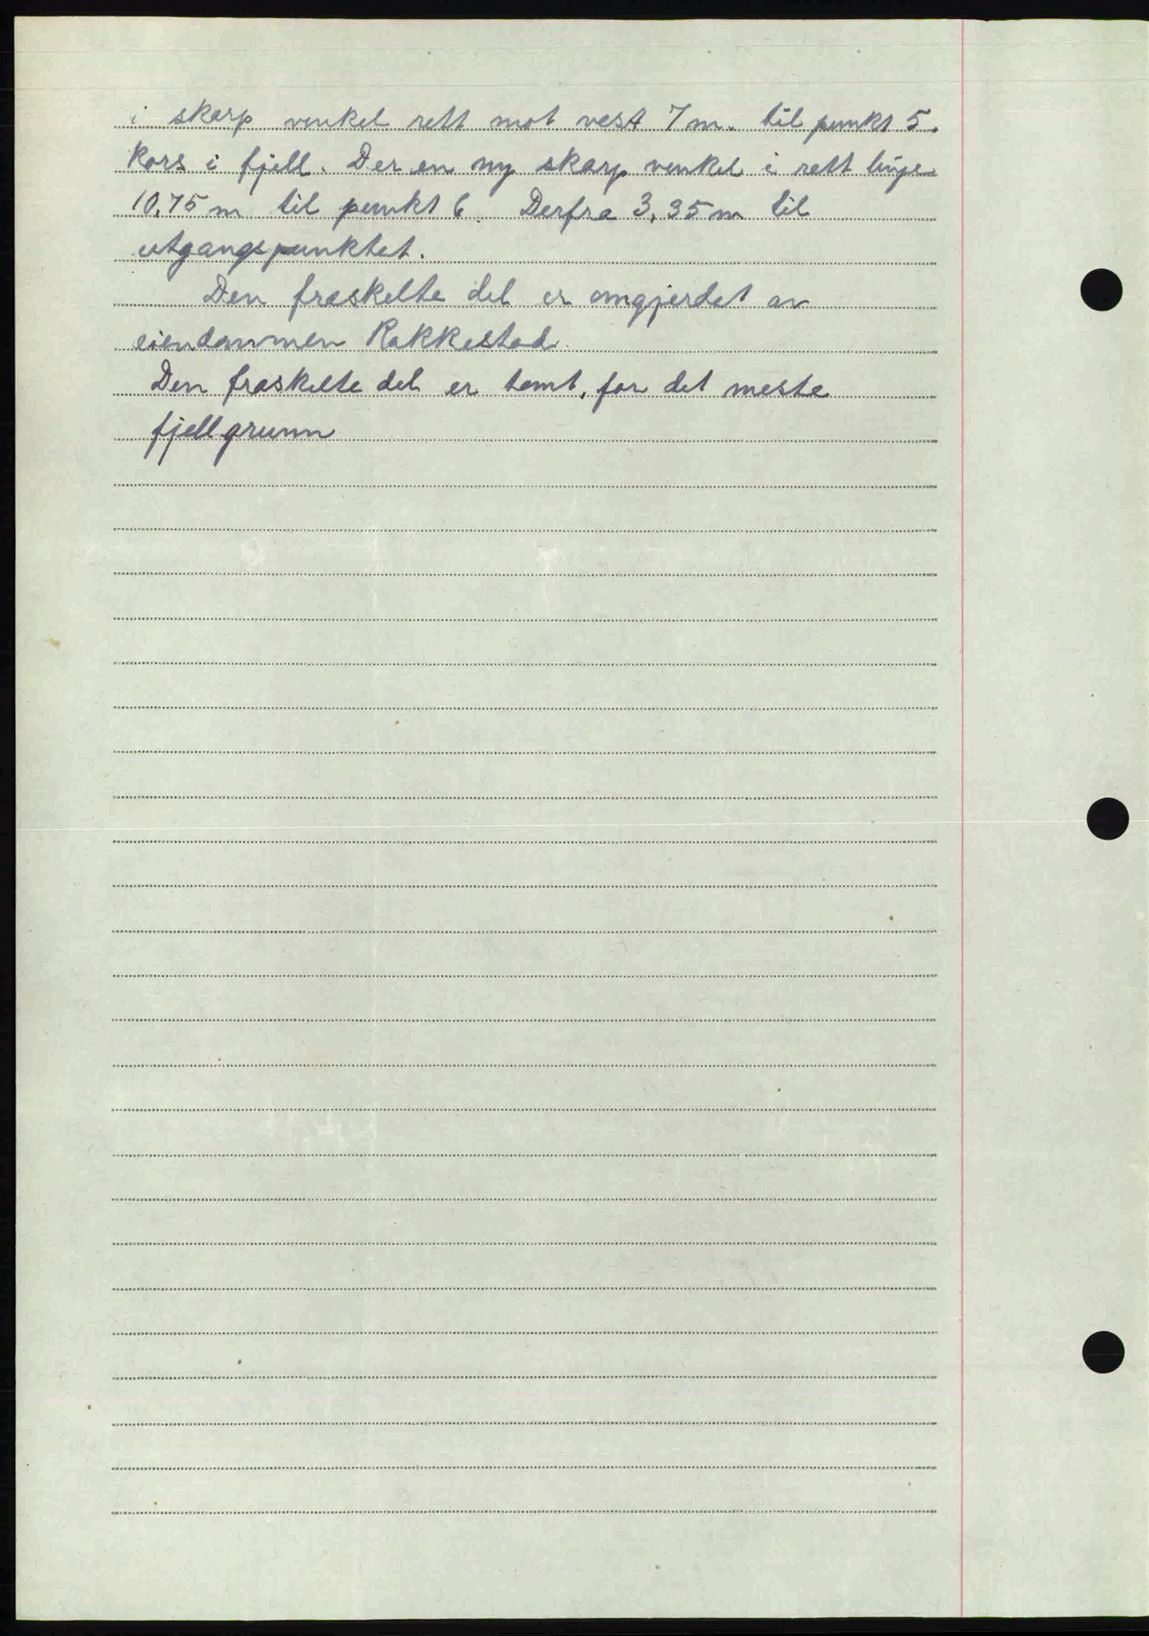 i skarp venkel rett mot vest 7 m. til punkt 5.
Kors i fjell. Der en ny skarp venkel i rett linje
10,75 m til punkt 6. Derfra 3,35 m til
utgangspunktet.
Den fraskelte del er omgjerdet av
eiendommen Rakkestad.
Den fraskelte del er tomt, for det meste
fjellgrunn